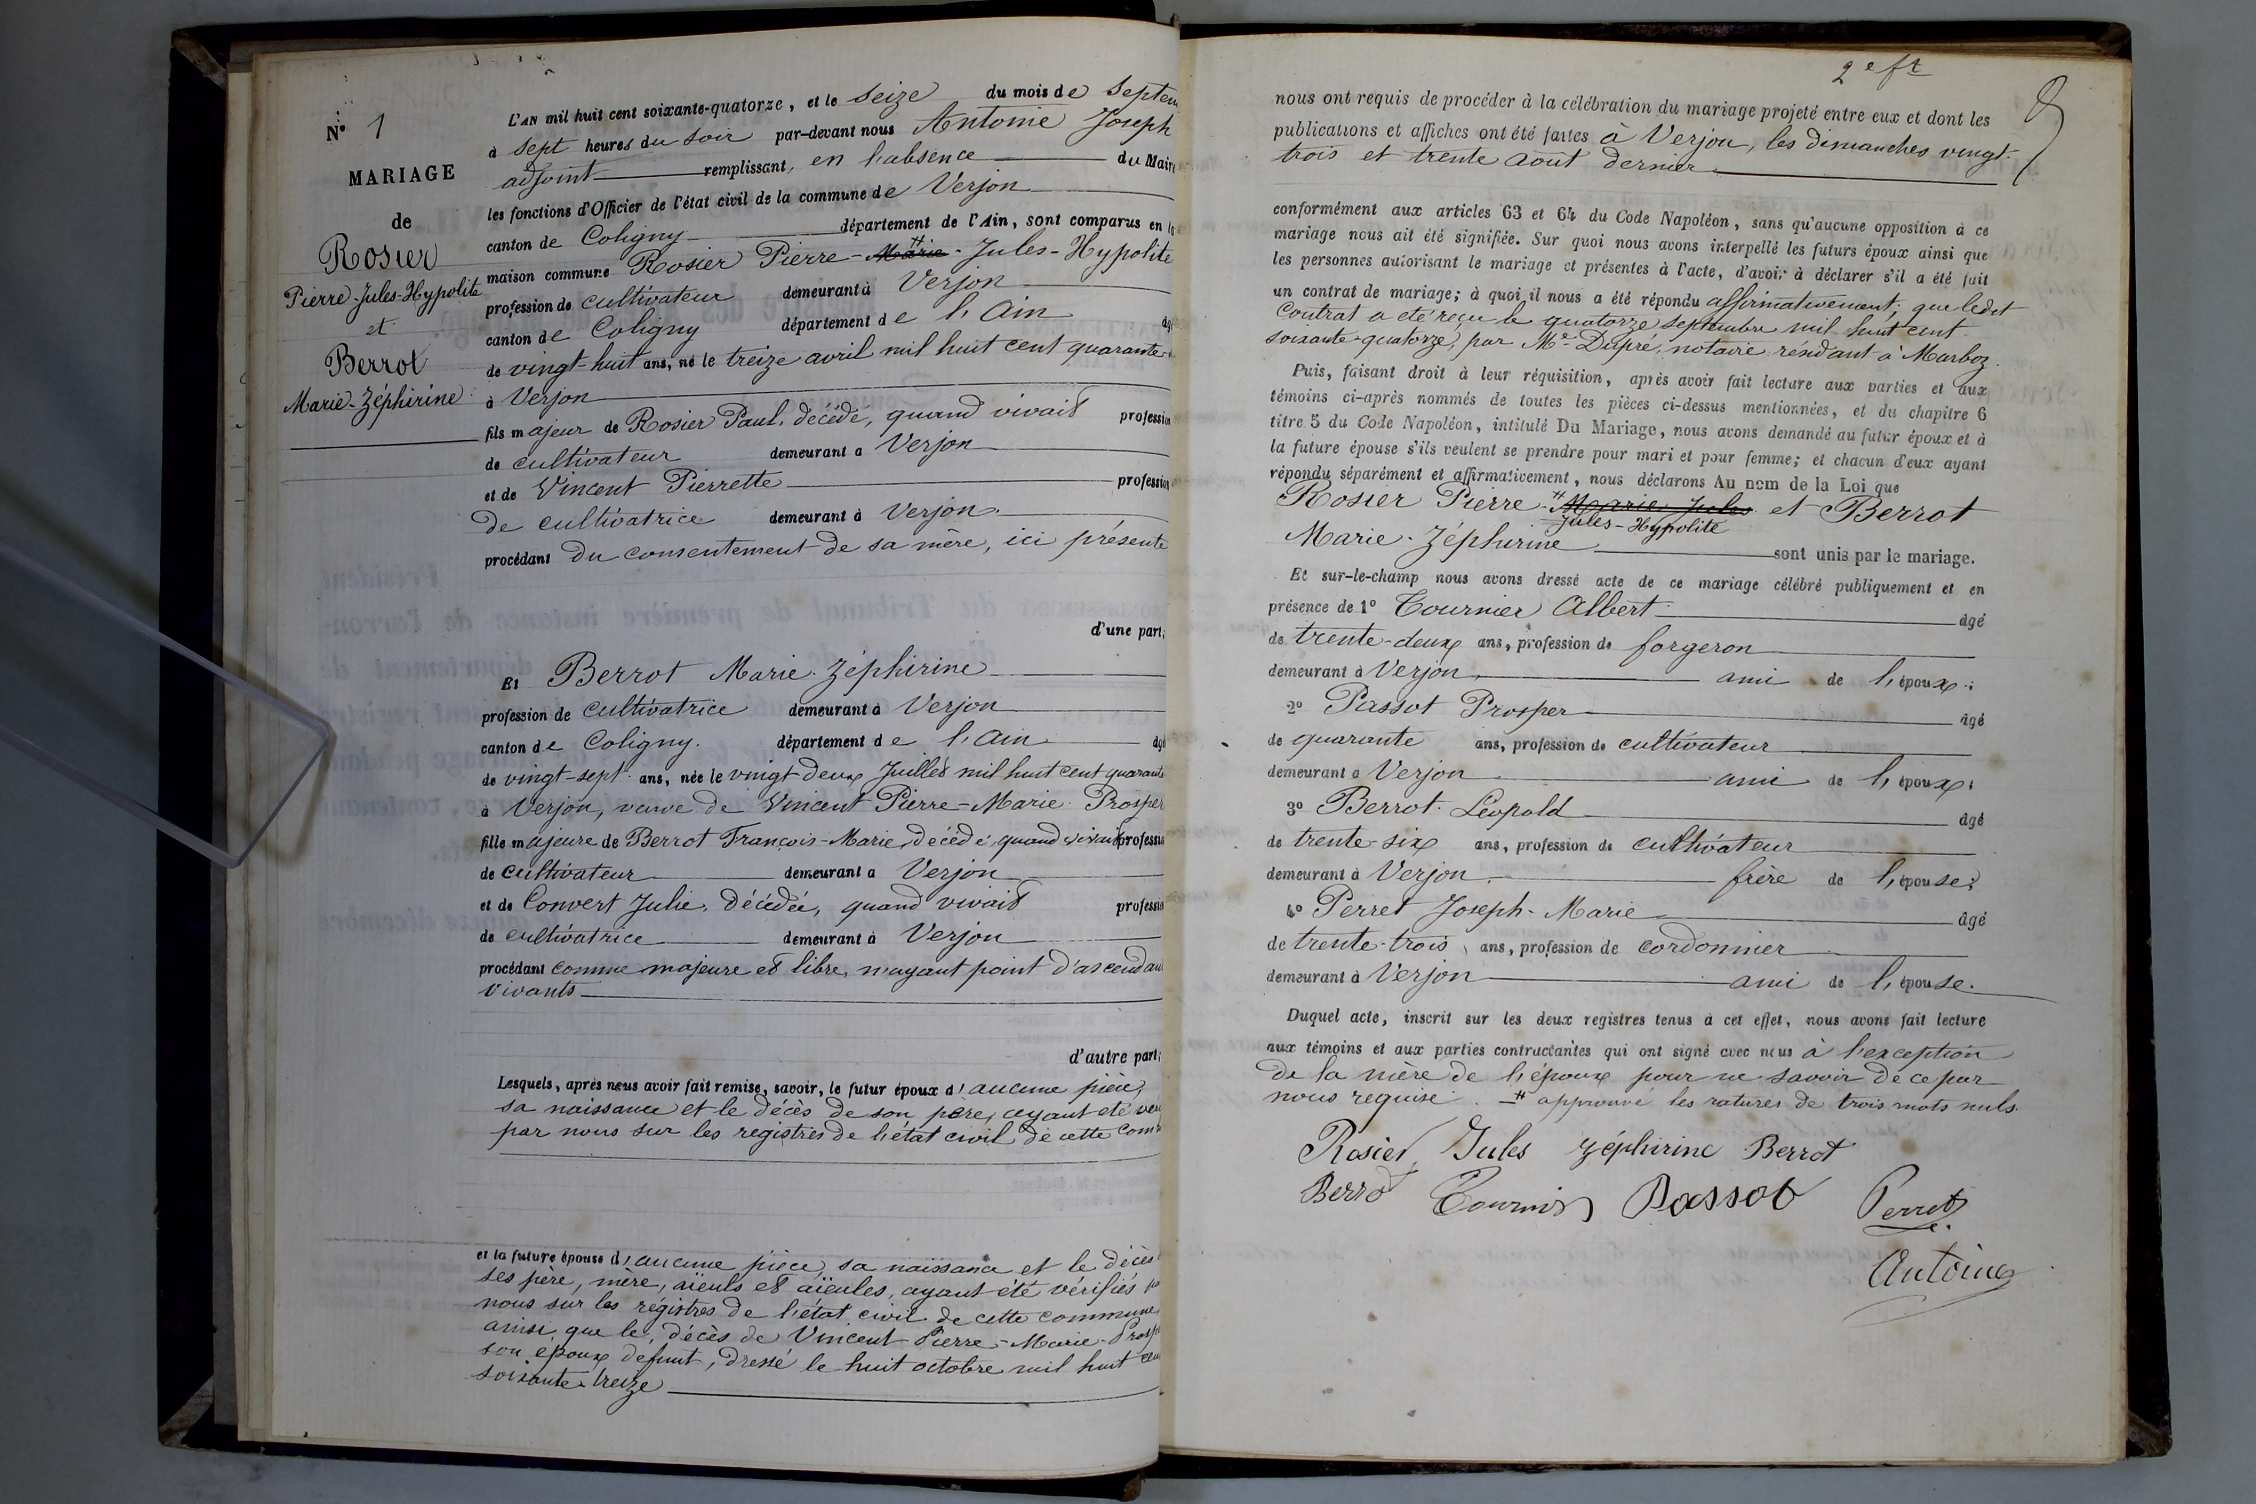 N° 1
MARIAGE
de
Rosier
Pierre-Jules-Hypolite
et
Berrot
Marie-Zéphirine
L'AN mil huit cent soixante-quatorze, et le seize du mois de Septem
à sept heures du soir par-devant nous Antoine Joseph
adjoint remplissant, en l'absence du Maire
les fonctions d'Officier de l'état civil de la commune de Verjon
canton de Coligny département de l'Ain, sont comparus en la
maison commune Rosier Pierre-Marie-Jules-Hypolite
profession de cultivateur demeurant à Verjon
canton de Coligny département de l'Ain âgé
de vingt-huit ans, né le treize avril mil huit cent quarante-
à Verjon
fils majeur de Rosier Paul, décédé, quand vivait profession
de cultivateur demeurant a Verjon
et de Vincent Pierrette profession
de cultivatrice demeurant à Verjon
procédant du consentement de sa mère, ici présente
d'une part;
Et Berrot Marie-Zéphirine
profession de cultivatrice demeurant à Verjon
canton de Coligny. département de l'Ain âgé
de vingt-sept ans, née le vingt deux Juillet mil huit cent quarante
à Verjon, veuve de Vincent Pierre-Marie-Prosper
fille majeure de Berrot François-Marie, décédé, quand vivait profession
de cultivateur demeurant a Verjon
et de Convert Julie, décédée, quand vivait profession
de cultivatrice demeurant à Verjon
procédant comme majeure et libre, n'ayant point d'ascendants
vivants
d'autre part;
Lesquels, après nous avoir fait remise, savoir, le futur époux d'aucune pièce,
sa naissance et le décès de son père, ayant été
par nous sur les registres de l'état civil de cette comm
et la future épouse d'aucune pièce, sa naissance et le décès
ses père, mère, aïeuls et aïeules, ayant été vérifiés par
nous sur les régistres de l'état civil de cette commune
ainsi que le décès de Vincent Pierre-Marie-Prosp
son époux défunt, dressé le huit octobre mil huit cent
soixante-treize
2e ft
nous ont requis de procéder à la célébration du mariage projeté entre eux et dont les
publications et affiches ont été faites à Verjon, les dimanches vingt-
trois et trente août dernier
conformément aux articles 63 et 64 du Code Napoléon, sans qu'aucune opposition à ce
mariage nous ait été signifiée. Sur quoi nous avons interpellé les futurs époux ainsi que
les personnes autorisant le mariage et présentes à l'acte, d'avoir à déclarer s'il a été fait
un contrat de mariage; à quoi il nous a été répondu affirmativement, que ledit
contrat a été reçu le quatorze septembre mil huit cent
soixante-quatorze, par Me Dupré, notaire résidant à Marboz.
Puis, faisant droit à leur réquisition, après avoir fait lecture aux parties et aux
témoins ci-après nommés de toutes les pièces ci-dessus mentionnées, et du chapitre 6
titre 5 du Code Napoléon, intitulé Du Mariage, nous avons demandé au futur époux et à
la future épouse s'ils veulent se prendre pour mari et pour femme; et chacun d'eux ayant
répondu séparément et affirmativement, nous déclarons Au nom de la Loi que
Rosier Pierre-# Marie Jules et Berrot
Jules-Hypolite
Marie-Zéphirine sont unis par le mariage.
Et sur-le-champ nous avons dressé acte de ce mariage célébré publiquement et en
présence de 1° Tournier Albert âgé
de trente-deux ans, profession de forgeron
demeurant à Verjon, ami de l'époux;
2° Passot Prosper âgé
de quarante ans, profession de cultivateur
demeurant a Verjon ami de l'époux;
3° Berrot Léopold âgé
de trente-six ans, profession de cultivateur
demeurant à Verjon. frère de l'épouse;
4° Perret Joseph-Marie âgé
de trente-trois ans, profession de cordonnier
demeurant à Verjon ami de l'épouse.
Duquel acte, inscrit sur les deux registres tenus à cet effet, nous avons fait lecture
aux témoins et aux parties contractantes qui ont signé avec nous à l'exception
de la mère de l'époux pour ne savoir de ce par
nous requise. # approuvé les ratures de trois mots nuls.
Rosier Jules Zéphirine Berrot
Berrot Tournier Passot Perret
Antoine